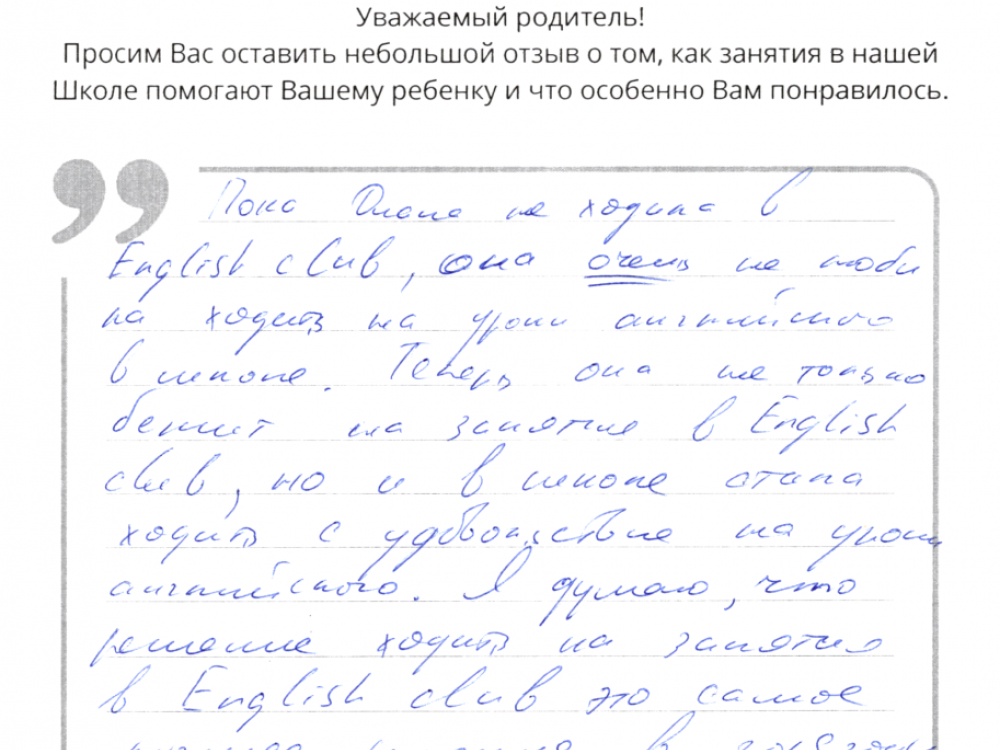 Уважаемый родитель!
Просим Вас оставить небольшой отзыв о том, как занятия в нашей
Школе помогают Вашему ребенку и что особенно Вам понравилось.
Пока не ходила в
English club, она очень не люби
ла ходить на уроки английского
в школе. Теперь она не только
бежит на занятие в English
club, но и в школе стала
ходить с удовольствие на уроки
английского. Я думаю, что
решение ходить на занятия
в English club это самое
в